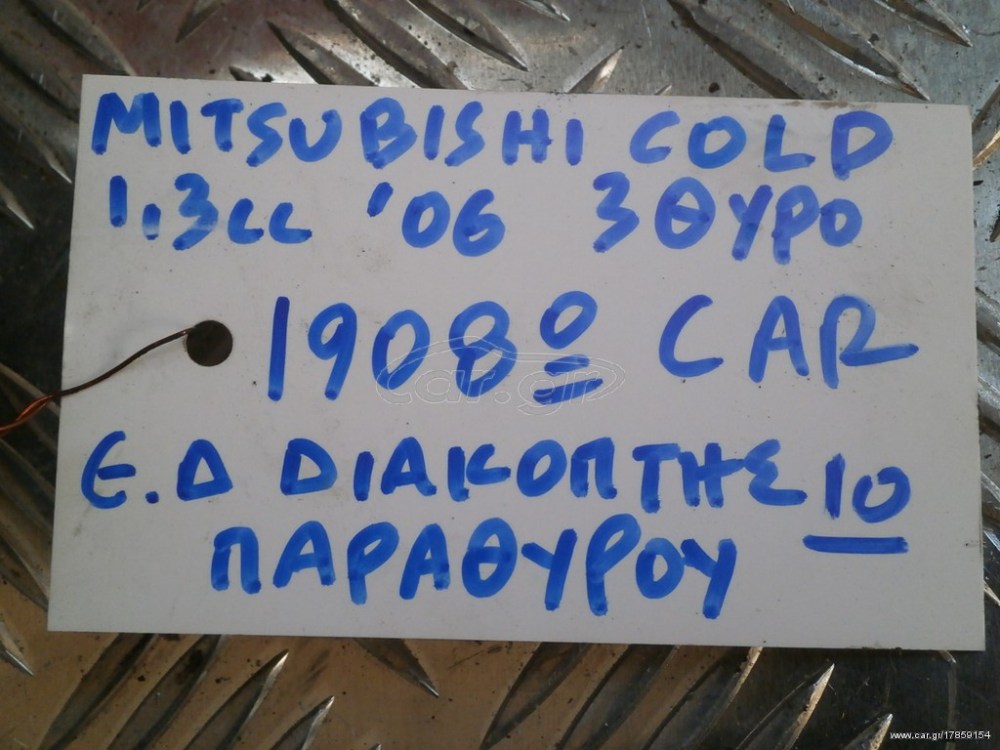 MITSUBISHI COLD
1.3cc '06 3ΘΥΡΟ
1908º CAR
Ε.Δ ΔΙΑΚΟΠΤΗΣ 10
ΠΑΡΑΘΥΡΟΥ
car.gr
www.car.gr/17859154